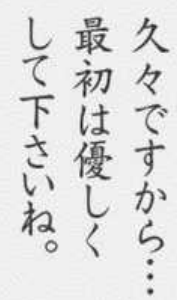 久々ですから…
最初は優しく
して下さいね。